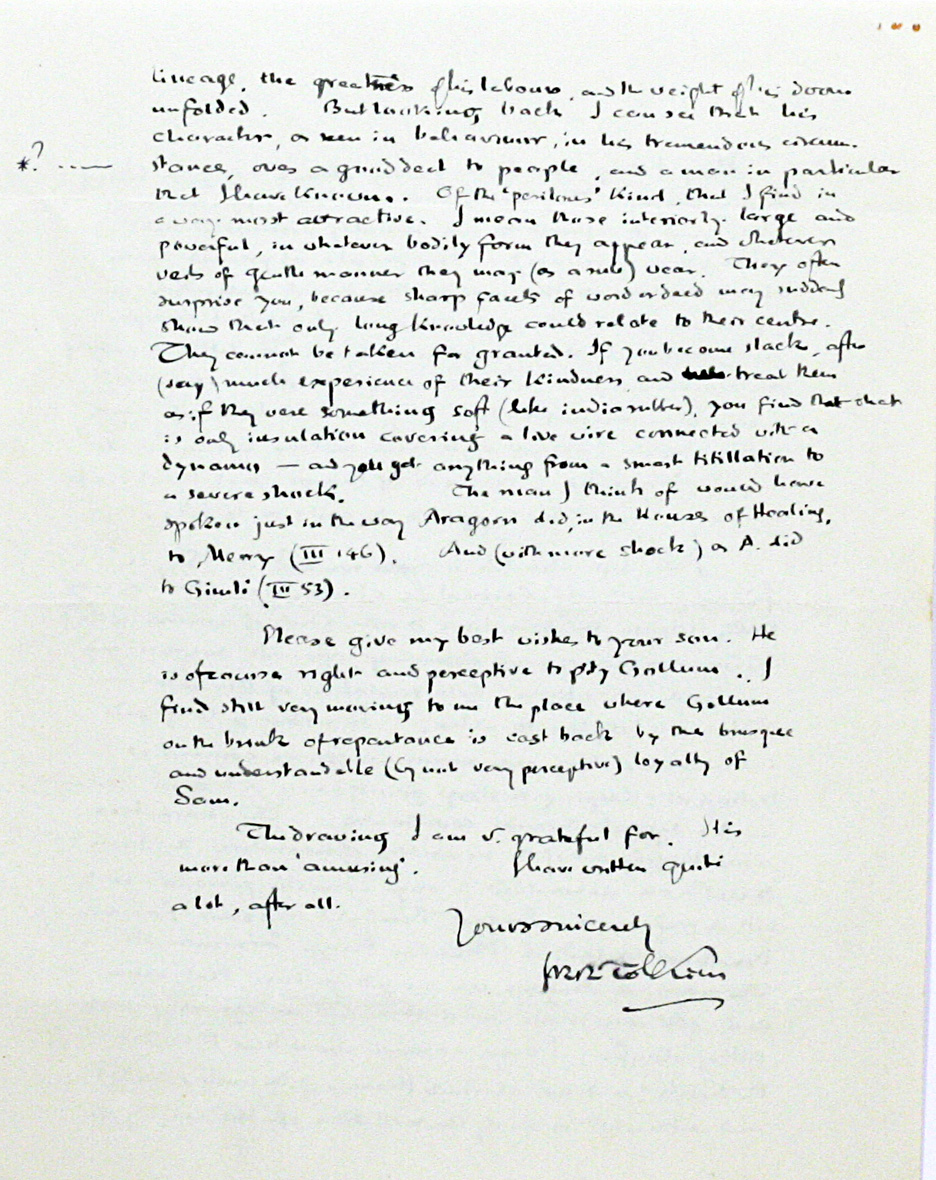 lineage, the greatness of his labours, and the weight of his doom
unfolded. But looking back I can see that his
character, as seen in behaviour, in his tremendous circum-
*? stance, owes a good deal to people, and a man in particular
that I have known. Of the 'perilous' kind, that I find in
a way most attractive. I mean those interiorly large and
powerful, in whatever bodily form they appear, and whatever
veils of gentle manner they may (as a rule) wear. They often
surprise you, because sharp facets of word or deed may suddenly
show that only long knowledge could relate to their centre.
They cannot be taken for granted. If you become slack, after
(say) much experience of their kindness, and treat them
as if they were something soft (like indiarubber), you find that that
is only insulation covering a live wire connected with a
dynamo — and you get anything from a smart titillation to
a severe shock. The man I think of would have
spoken just in the way Aragorn did, in the Houses of Healing,
to Merry (III 146). And (with more shock) as A. did
to Gimli (III 53).
Please give my best wishes to your son. He
is of course right and perceptive to pity Gollum. I
find still very moving to me the place where Gollum
on the brink of repentance is cast back by the brusque
and understandable (by not very perceptive) loyalty of
Sam.
The drawing I am v. grateful for. It is
more than 'amusing'. I have written quite
a lot, after all.
Yours sincerely
JRR Tolkien